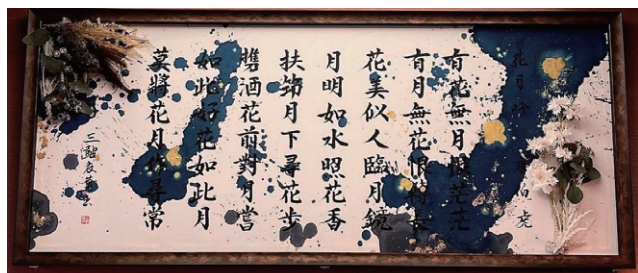 花月吟 伯虎
有花無月恨茫茫
有月無花恨轉長
花美似人臨月鏡
月明如水照花香
扶筇月下尋花步
攜酒花前對月嘗
如此好花如此月
莫將花月作尋常
三